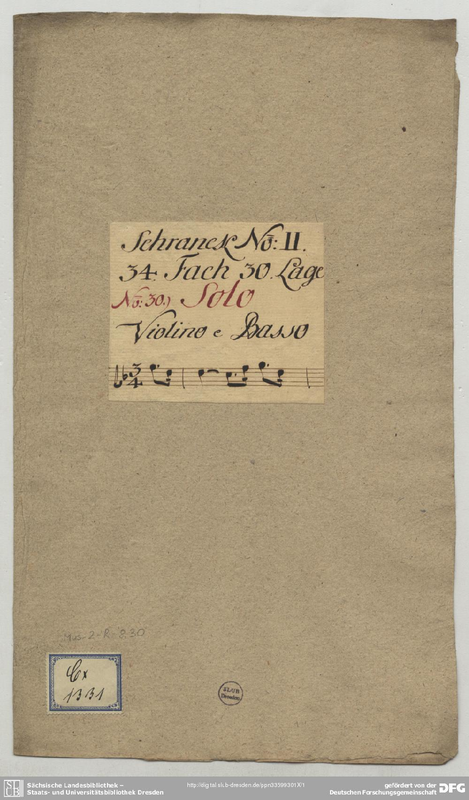 Schranck No: II.
34. Fach 30. Lage
No: 30.) Solo
Violino e Basso
3
4
Cx
1331
SLUB
Dresden
Sächsische Landesbibliothek –
Staats- und Universitätsbibliothek Dresden
http://digital.slub-dresden.de/ppn33599301X/1
gefördert von der
Deutschen Forschungsgemeinschaft
DFG